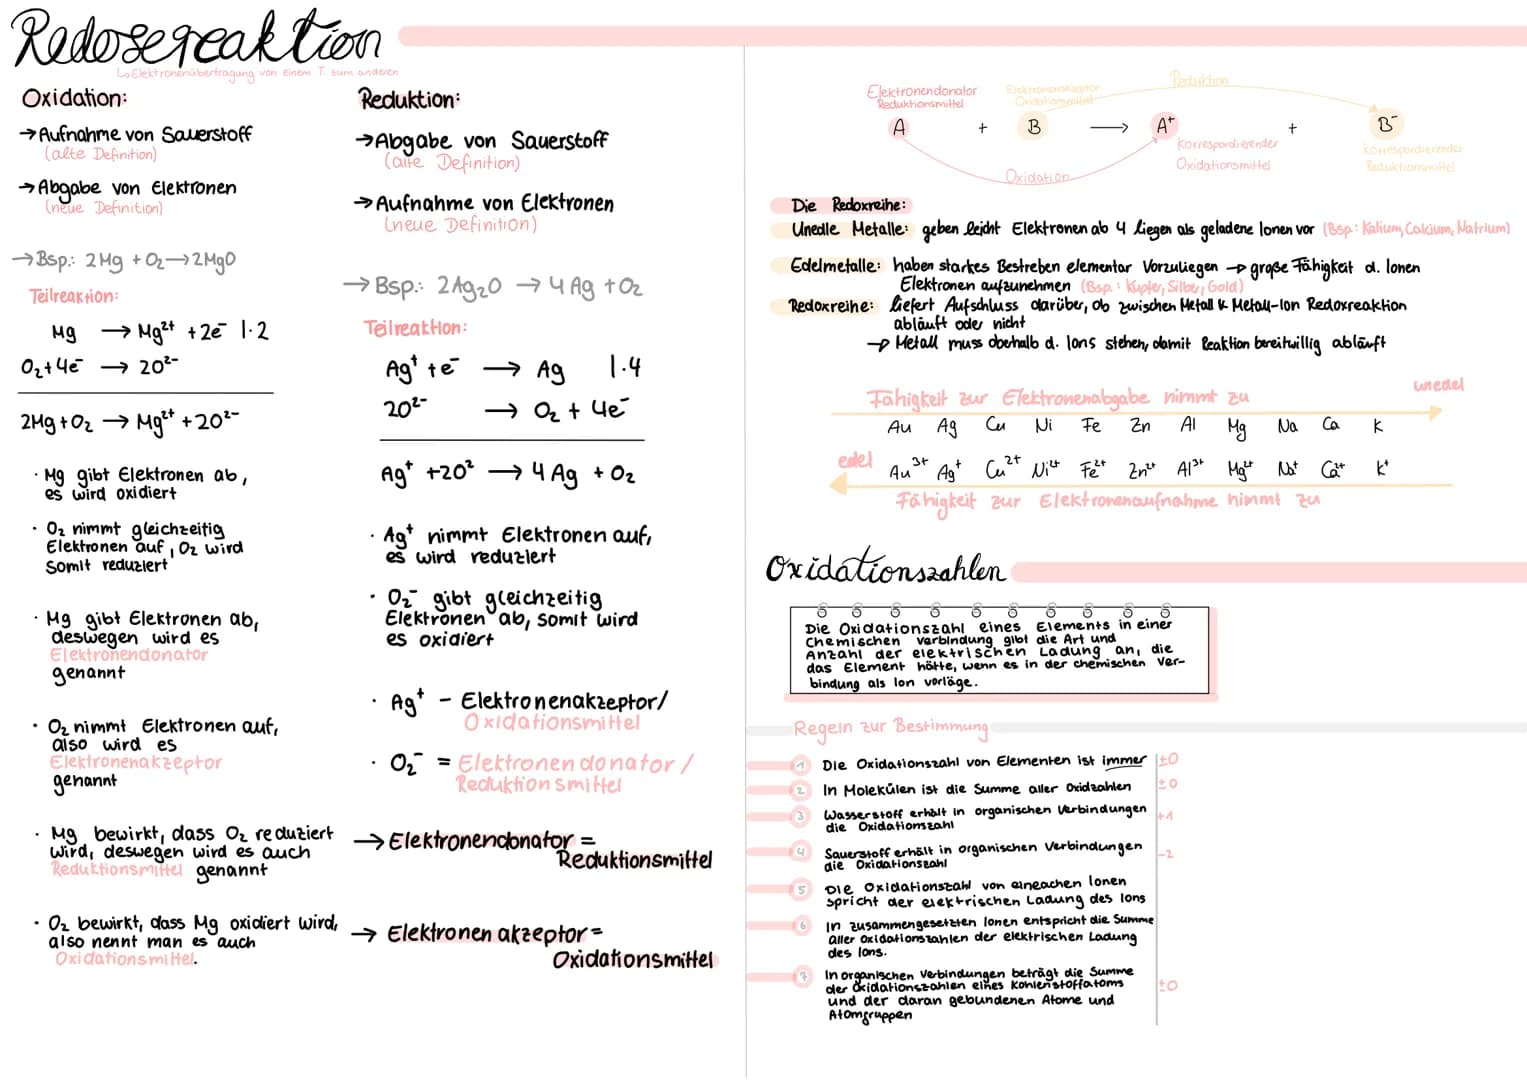 Redoxreaktion
↳ Elektronenübertragung von einem T. zum anderen
Oxidation:
→ Aufnahme von Sauerstoff
(alte Definition)
→ Abgabe von Elektronen
(neue Definition)
→ Bsp.: 2Mg + O₂ → 2MgO
Teilreaktion:
Mg → Mg²⁺ + 2e⁻ |·2
O₂ + 4e⁻ → 2O²⁻
2Mg + O₂ → Mg²⁺ + 2O²⁻
· Mg gibt Elektronen ab,
es wird oxidiert
· O₂ nimmt gleichzeitig
Elektronen auf, O₂ wird
somit reduziert
· Mg gibt Elektronen ab,
deswegen wird es
Elektronendonator
genannt
· O₂ nimmt Elektronen auf,
also wird es
Elektronenakzeptor
genannt
· Mg bewirkt, dass O₂ reduziert
wird, deswegen wird es auch
Reduktionsmittel genannt
· O₂ bewirkt, dass Mg oxidiert wird,
also nennt man es auch
Oxidationsmittel.
Reduktion:
→ Abgabe von Sauerstoff
(alte Definition)
→ Aufnahme von Elektronen
(neue Definition)
→ Bsp.: 2Ag₂O → 4Ag + O₂
Teilreaktion:
Ag⁺ + e⁻ → Ag |·4
2O²⁻ → O₂ + 4e⁻
Ag⁺ + 2O² → 4Ag + O₂
· Ag⁺ nimmt Elektronen auf,
es wird reduziert
· O₂⁻ gibt gleichzeitig
Elektronen ab, somit wird
es oxidiert
· Ag⁺ - Elektronenakzeptor/
Oxidationsmittel
· O₂⁻ = Elektronendonator/
Reduktionsmittel
→ Elektronendonator =
Reduktionsmittel
→ Elektronenakzeptor =
Oxidationsmittel
Reduktion
Elektronendonator
Reduktionsmittel
Elektronenakzeptor
Oxidationsmittel
A + B → A⁺ + B⁻
Korrespondierender
Oxidationsmittel
Korrespondierender
Reduktionsmittel
Oxidation
Die Redoxreihe:
Unedle Metalle: geben leicht Elektronen ab & liegen als geladene Ionen vor (Bsp: Kalium, Calcium, Natrium)
Edelmetalle: haben starkes Bestreben elementar vorzuliegen → große Fähigkeit d. Ionen
Elektronen aufzunehmen (Bsp: Kupfer, Silber, Gold)
Redoxreihe: liefert Aufschluss darüber, ob zwischen Metall & Metall-Ion Redoxreaktion
abläuft oder nicht
→ Metall muss oberhalb d. Ions stehen, damit Reaktion bereitwillig abläuft
unedel
Fähigkeit zur Elektronenabgabe nimmt zu
Au Ag Cu Ni Fe Zn Al Mg Na Ca K
edel
Au³⁺ Ag⁺ Cu²⁺ Ni²⁺ Fe²⁺ Zn²⁺ Al³⁺ Mg²⁺ Na⁺ Ca²⁺ K⁺
Fähigkeit zur Elektronenaufnahme nimmt zu
Oxidationszahlen
Die Oxidationszahl eines Elements in einer
Chemischen verbindung gibt die Art und
Anzahl der elektrischen Ladung an, die
das Element hätte, wenn es in der chemischen Ver-
bindung als Ion vorläge.
Regeln zur Bestimmung
1 Die Oxidationszahl von Elementen ist immer ±0
2 In Molekülen ist die Summe aller Oxidzahlen ±0
3 Wasserstoff erhält in organischen Verbindungen
die Oxidationszahl +1
4 Sauerstoff erhält in organischen Verbindungen
die Oxidationszahl -2
5 Die Oxidationszahl von eineachen Ionen
spricht der elektrischen Ladung des Ions
6 In zusammengesetzten Ionen entspricht die Summe
aller Oxidationszahlen der elektrischen Ladung
des Ions.
7 In organischen Verbindungen beträgt die Summe
der Oxidationszahlen eines Kohlenstoffatoms
und der daran gebundenen Atome und
Atomgruppen ±0